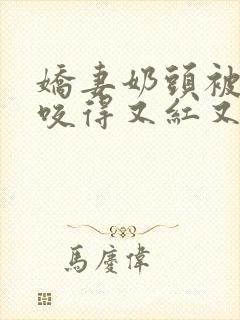 嬌妻奶頭被
咬得又紅又
馬慶偉